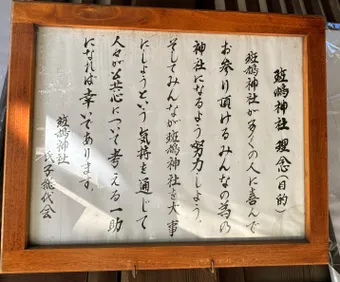 斑鳩神社 理念(目的)
斑鳩神社が多くの人に喜んで
お参り頂けるみんなの為の
神社になるよう努力しよう。
そしてみんなが斑鳩神社を大事
にしようという気持を通じて
人々が公共心について考える一助
になれば幸いであります。
斑鳩神社
氏子総代会